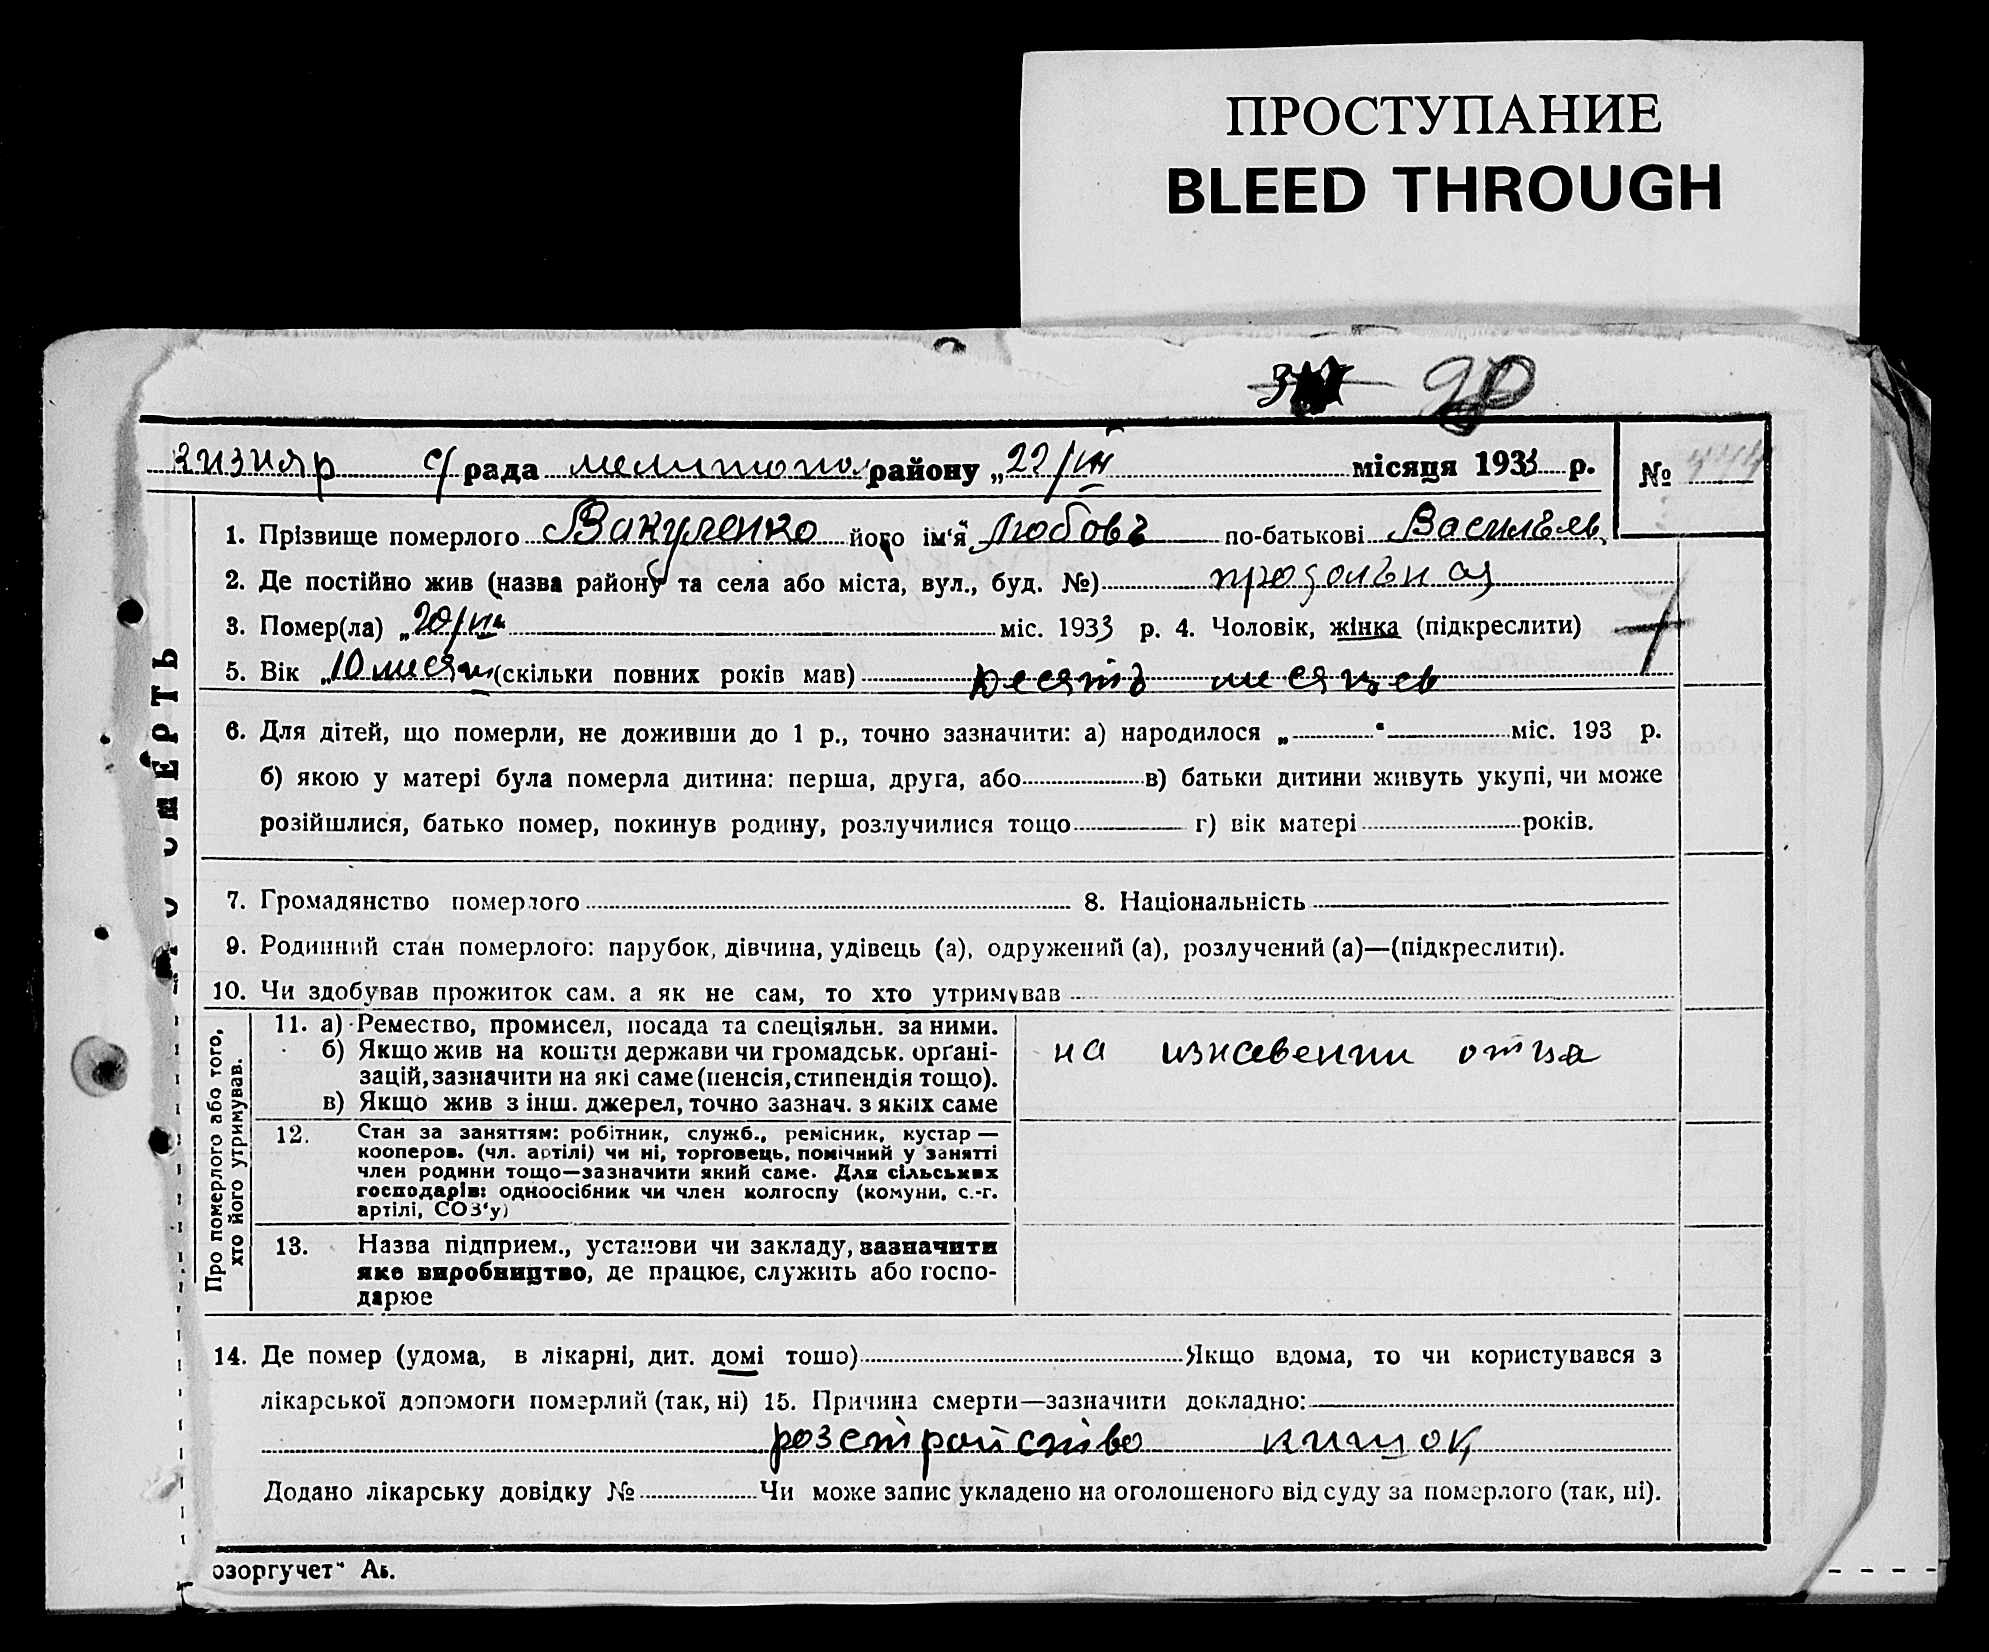 ПРОСТУПАНИЕ
BLEED THROUGH
кизияр с/ рада мелитопол району „22/III місяця 1933 р. №
1. Прізвище померлого Вакуленко його ім'я Любовь по-батькові Васильев.
2. Де постійно жив (назва району та села або міста, вул., буд. №) продольная
3. Помер(ла) „20/III“ міс. 1933 р. 4. Чоловік, жінка (підкреслити)
5. Вік „10 месяц (скільки повних років мав) десять месяцев
6. Для дітей, що померли, не доживши до 1 р., точно зазначити: а) народилося „ “ міс. 193 р.
б) якою у матері була померла дитина: перша, друга, або в) батьки дитини живуть укупі, чи може
розійшлися, батько помер, покинув родину, розлучилися тощо г) вік матері років.
7. Громадянство померлого 8. Національність
9. Родинний стан померлого: парубок, дівчина, удівець (а), одружений (а), розлучений (а)—(підкреслити).
10. Чи здобував прожиток сам. а як не сам, то хто утримував
Про померлого або того,
хто його утримував.
11. а) Ремество, промисел, посада та спеціяльн. за ними.
б) Якщо жив на кошти держави чи громадськ. орґані-
зацій, зазначити на які саме (пенсія, стипендія тощо).
в) Якщо жив з інш. джерел, точно зазнач. з яких саме
на отца
12. Стан за заняттям: робітник, служб., ремісник, кустар —
кооперов. (чл. артілі) чи ні, торговець, помічний у занятті
член родини тощо—зазначити який саме. Для сільських
господарів: одноосібник чи член колгоспу (комуни, с.-г.
артілі, СОЗ'у)
13. Назва підприєм., установи чи закладу, зазначити
яке виробництво, де працює, служить або госпо-
дарює
14. Де помер (удома, в лікарні, дит. домі тощо) Якщо вдома, то чи користувався з
лікарської допомоги померлий (так, ні) 15. Причина смерти—зазначити докладно:
розстройство кишок
Додано лікарську довідку № Чи може запис укладено на оголошеного від суду за померлого (так, ні).
озоргучет“